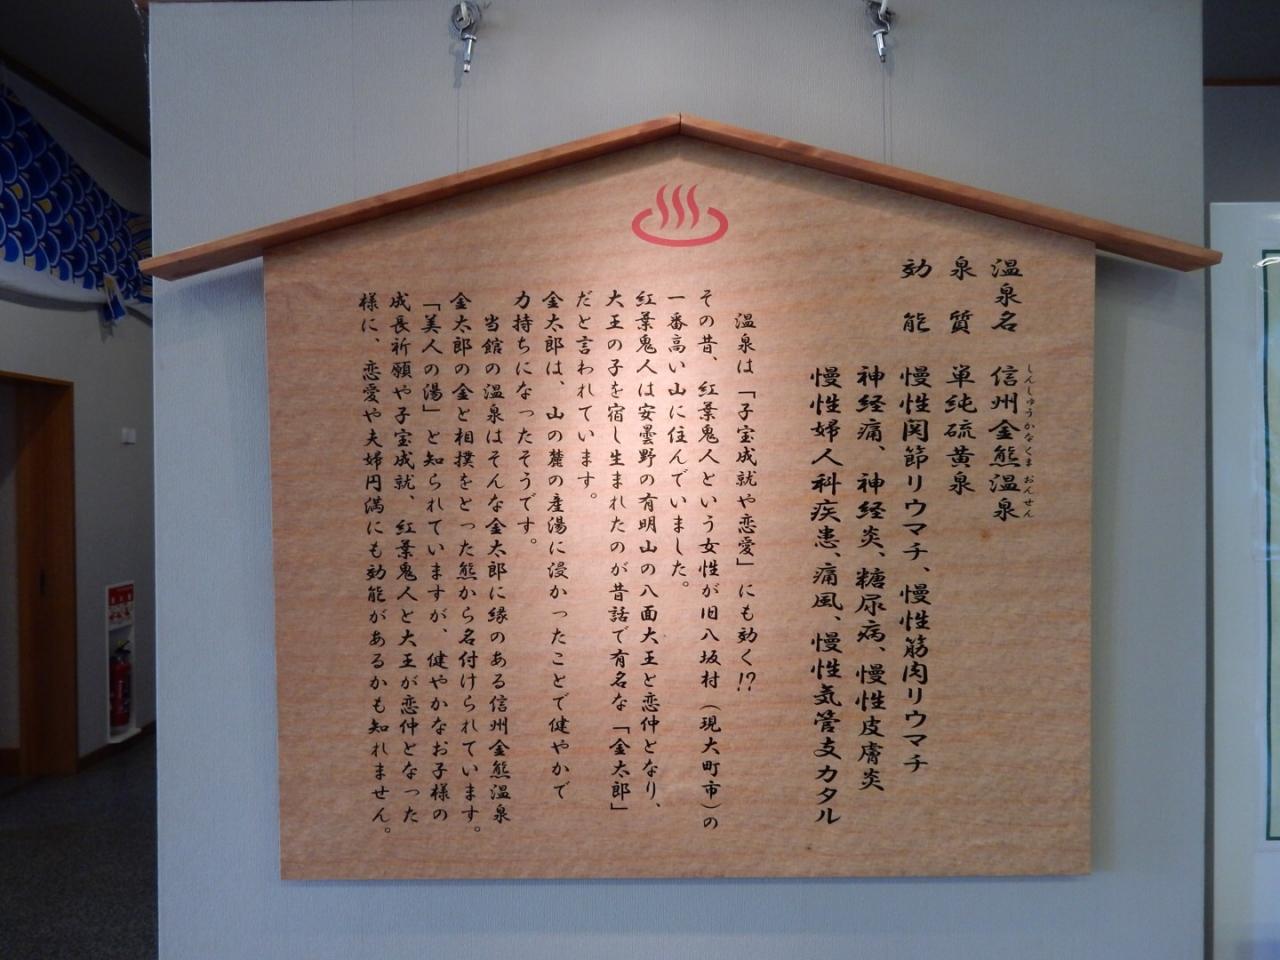 温泉名　信州金熊温泉
しんしゅうかなくまおんせん
泉質　単純硫黄泉
効能　慢性関節リウマチ、慢性筋肉リウマチ
神経痛、神経炎、糖尿病、慢性皮膚炎
慢性婦人科疾患、痛風、慢性気管支カタル
温泉は「子宝成就や恋愛」にも効く!?
その昔、紅葉鬼人という女性が旧八坂村（現大町市）の
一番高い山に住んでいました。
紅葉鬼人は安曇野の有明山の八面大王と恋仲となり、
大王の子を宿し生まれたのが昔話で有名な「金太郎」
だと言われています。
金太郎は、山の麓の産湯に浸かったことで健やかで
力持ちになったそうです。
当館の温泉はそんな金太郎に縁のある信州金熊温泉
金太郎の金と相撲をとった熊から名付けられています。
「美人の湯」と知られていますが、健やかなお子様の
成長祈願や子宝成就、紅葉鬼人と大王が恋仲となった
様に、恋愛や夫婦円満にも効能があるかも知れません。